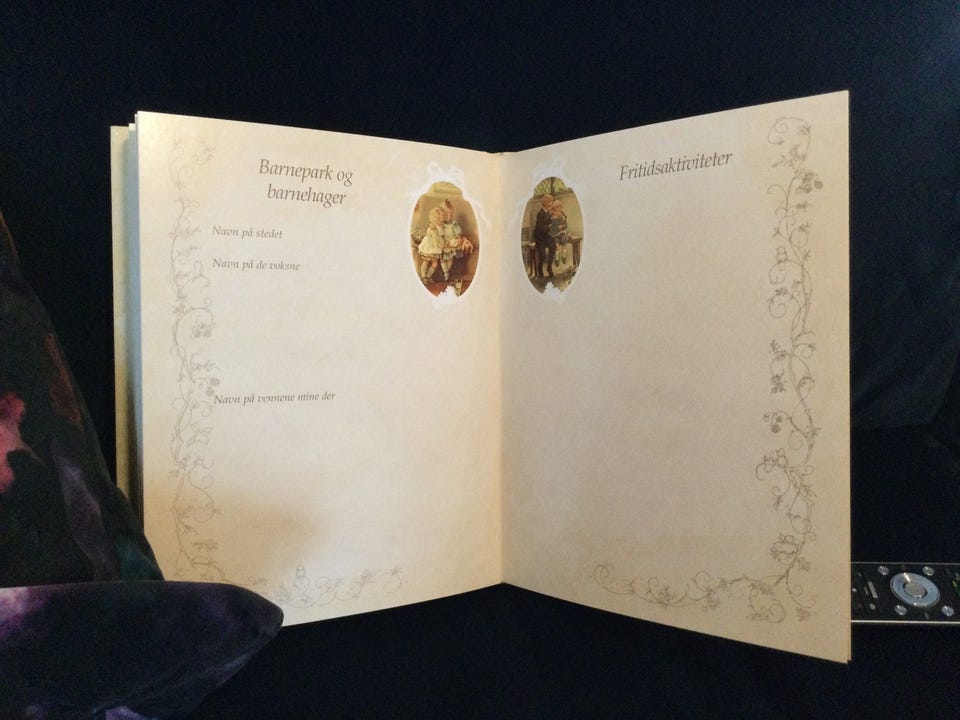 Barnepark og
barnehager
Navn på stedet
Navn på de voksne
Navn på vennene mine der
Fritidsaktiviteter